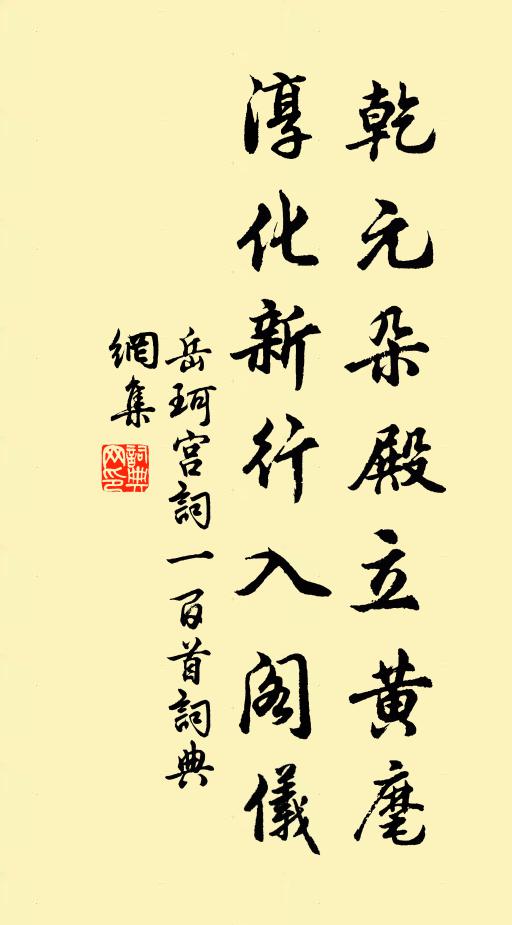 乾元朵殿立黄麾
淳化新行入阁儀
岳珂宫詞一百首詞典
網集
詞典
网印